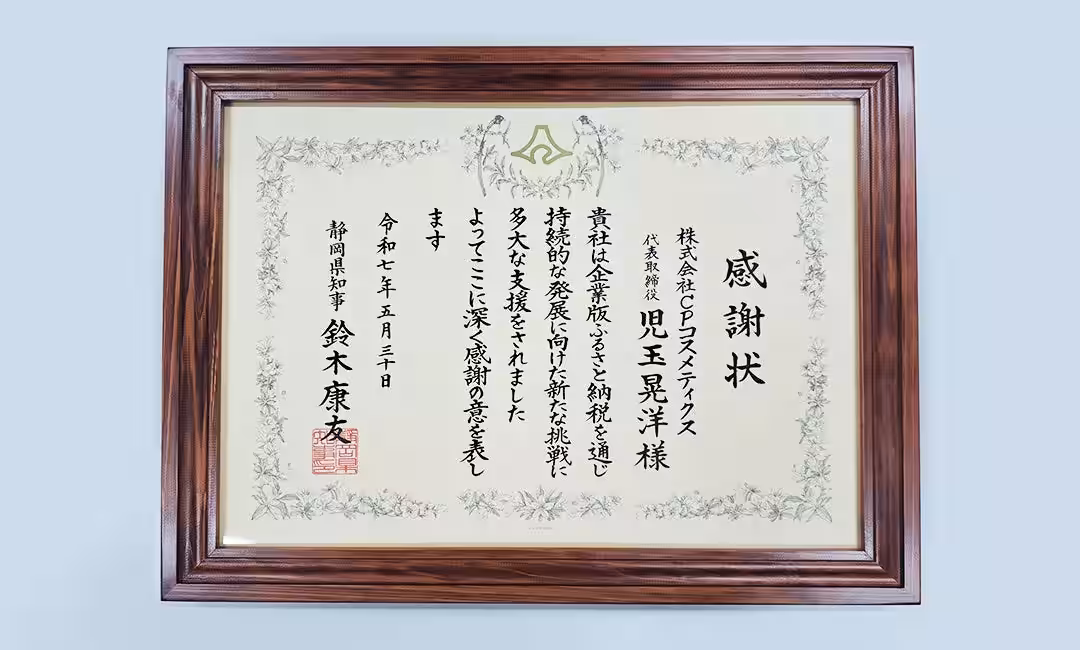 感謝状
株式会社CPコスメティクス
代表取締役 児玉晃洋様
貴社は企業版ふるさと納税を通じ
持続的な発展に向けた新たな挑戦に
多大な支援をされました
よってここに深く感謝の意を表し
ます
令和七年五月三十日
静岡県知事 鈴木康友